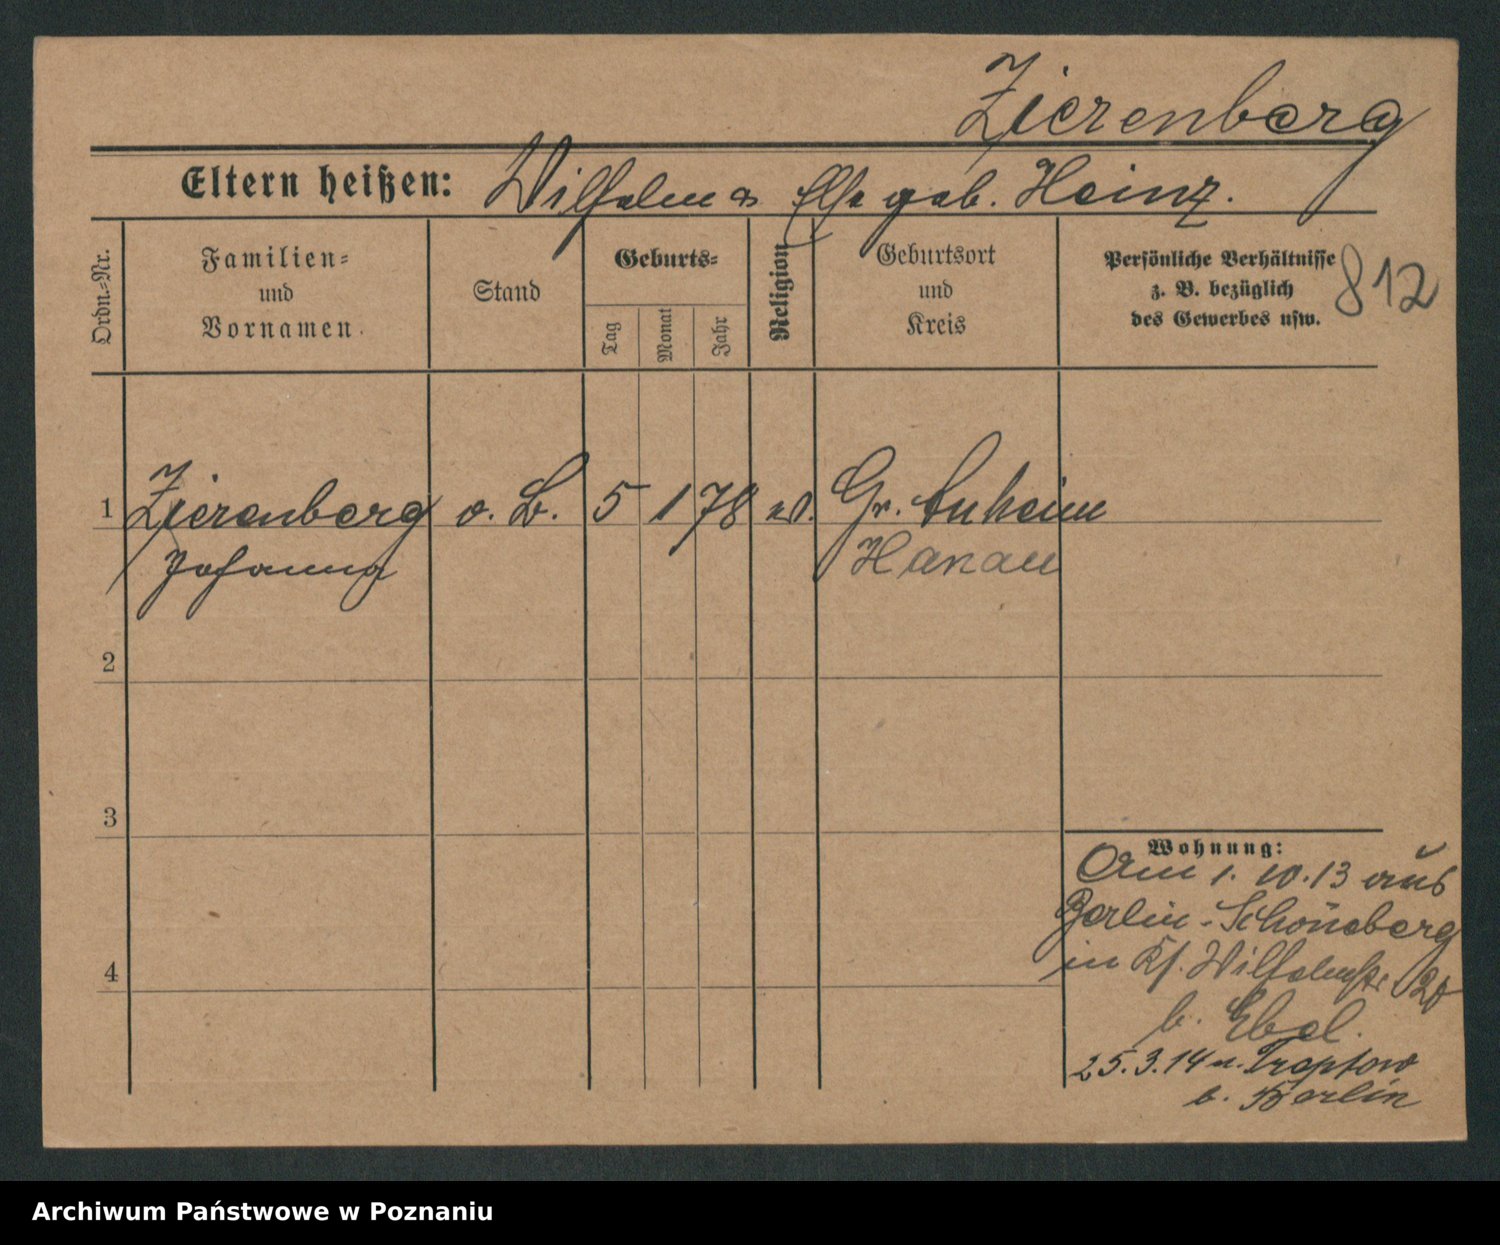 Zierenberg
Eltern heißen: Wilhelm & Else geb. Heinz.
Ordn.=Nr.
Familien=
und
Vornamen.
Stand
Geburts=
Tag
Monat
Jahr
Religion
Geburtsort
und
Kreis
Persönliche Verhältnisse
z. B. bezüglich
des Gewerbes usw.
812
1 Zierenberg o. B. 5 1 78 Gr. Auheim
Johanna Hanau
2
3
4
Wohnung:
Am 1. 10. 13 aus
Berlin-Schöneberg
in Ks. Wilhelmstr 20
b. Ebel.
25.3.14 n. Treptow
b. Berlin
Archiwum Państwowe w Poznaniu